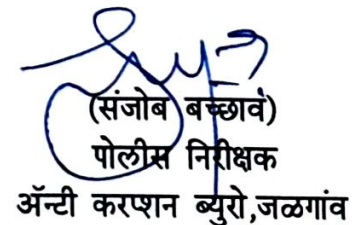 (संजोब बच्छाव)
पोलीस निरीक्षक
ॲन्टी करप्शन ब्युरो,जळगांव